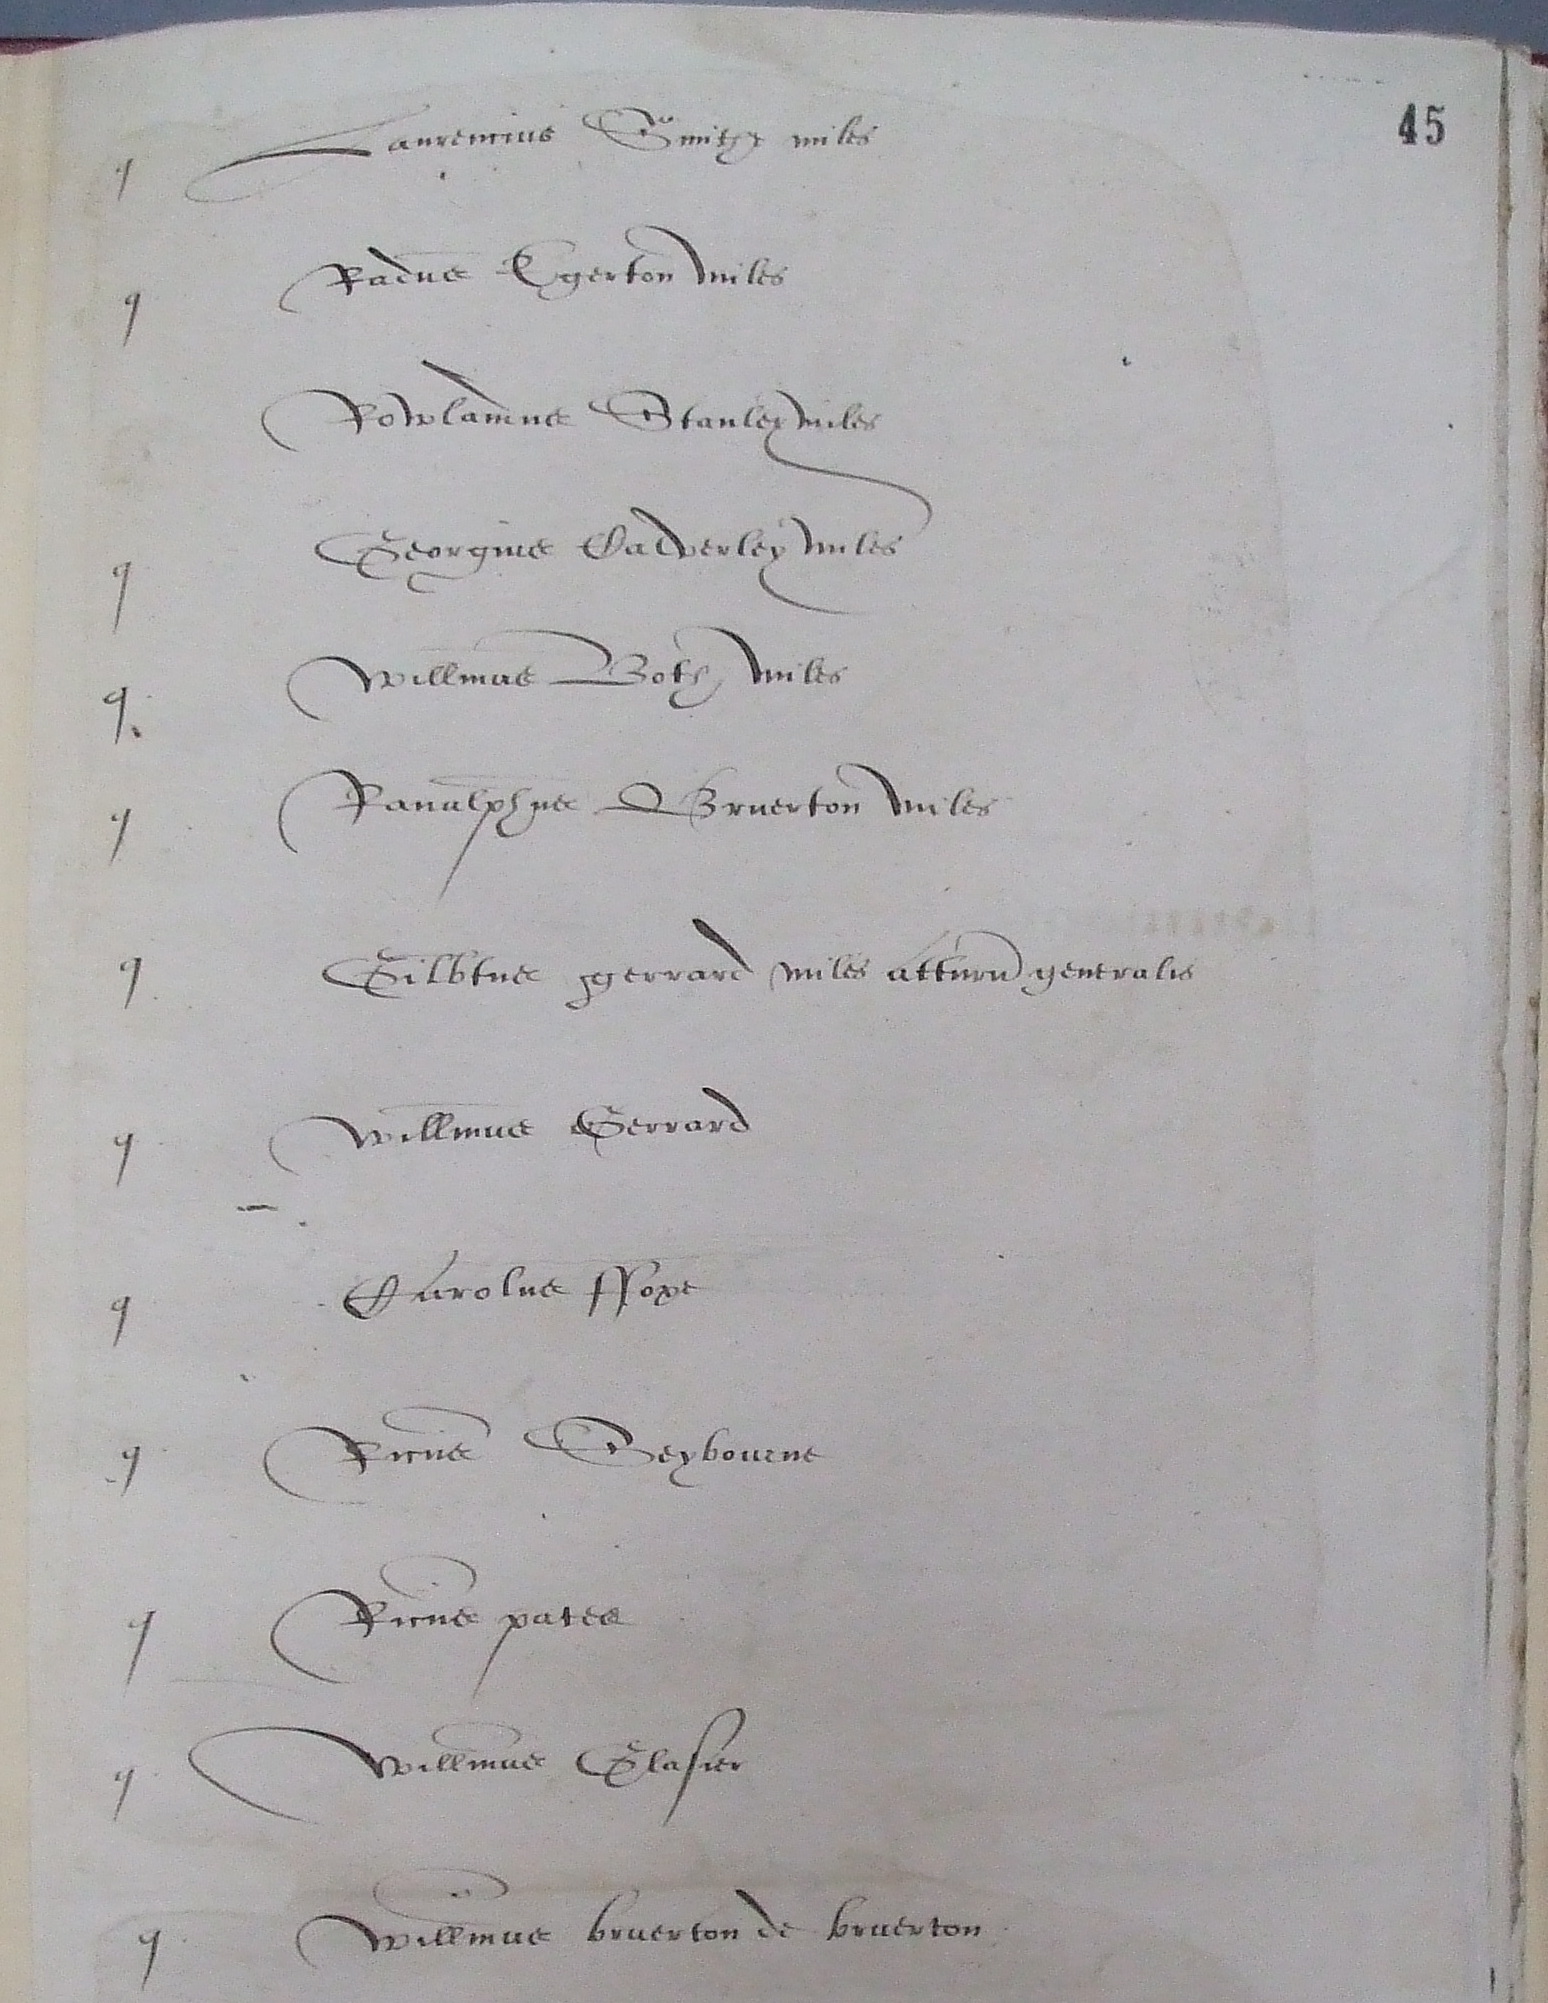 45
q Laurencius Smithe miles
q Radus Egerton miles
Rowlandus Stanley miles
q Georgius Calverley miles
q. Willmus Both miles
q Ranulphus Bruerton miles
q Gilbtus gerrard miles atturn generalis
q Willmus Gerrard
q Carolus ffoxe
q Ricus Seybourne
q Ricus pates
q Willmus Glasier
q Willmus bruerton de bruerton